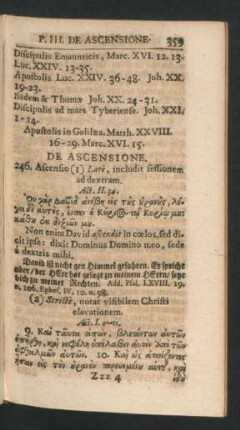 P. III. DE ASCENSIONE. 359
Discipulis Emaunticis, Marc. XVI. 12. 13.
Luc. XXIV. 13-35.
Apostolis Luc. XXIV. 36-48. Joh. XX.
19-23.
Iisdem & Thomæ Joh. XX. 24-31.
Discipulis ad mare Tyberiense. Joh. XXI.
1-14.
Apostolis in Galilæa. Matth. XXVIII.
16-29. Marc. XVI. 15.
DE ASCENSIONE.
246. Ascensio (1) Latè, includit sessionem
ad dextram.
Act. II. 34.
Non enim David ascendit in cœlos, sed di-
cit ipse: dixit Dominus Domino meo, sede
à dextris mihi.
David ist nicht gen Himmel gefahren. Er spricht
aber / der HErr hat gesagt zu meinem HErrn / setze
dich zu meiner Rechten. Add. Psal. LXVIII. 19.
n. 106. Ephes. IV. 10. n. 98.
(2) Strictè, notat visibilem Christi
elevationem.
Act. I. 9-11.
9. Καὶ ταῦτα εἰπὼν, βλεπόντων αὐτῶν
ἐπήρθη, καὶ νεφέλη ὑπέλαβεν αὐτὸν ἀπὸ τῶν
ὀφθαλμῶν αὐτῶν. 10. Καὶ ὡς ἀτενίζοντες
ἦσαν εἰς τὸν οὐρανὸν πορευομένου αὐτοῦ, καὶ
Zzz 4